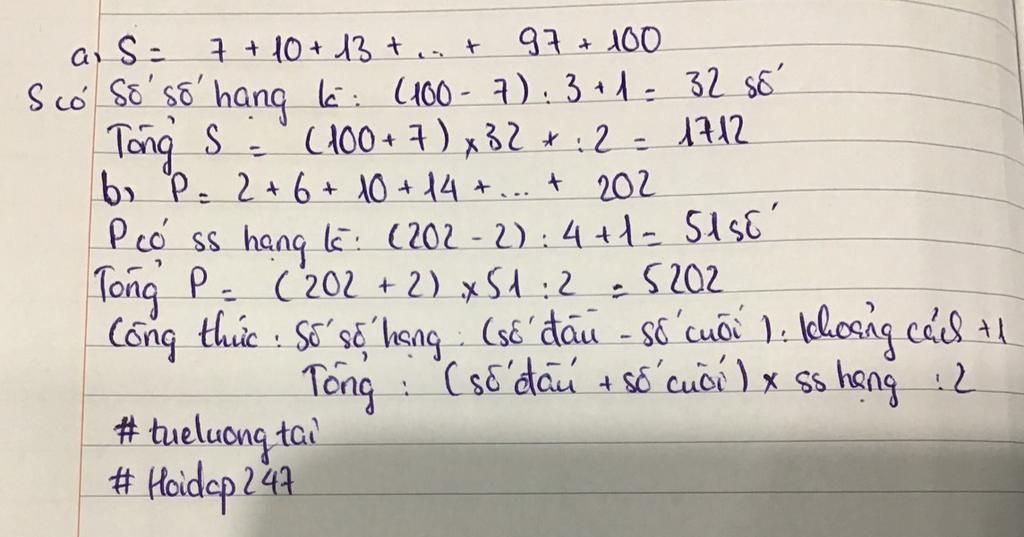 a, S = 7 + 10 + 13 + ... + 97 + 100
S có Số số hạng là: (100 - 7) : 3 + 1 = 32 số
Tổng S = (100 + 7) x 32 : 2 = 1712
b, P = 2 + 6 + 10 + 14 + ... + 202
P có ss hạng là: (202 - 2) : 4 + 1 = 51 số
Tổng P = (202 + 2) x 51 : 2 = 5202
Công thức : Số số hạng : (số đầu - số cuối) : khoảng cách + 1
Tổng : (số đầu + số cuối) x ss hạng : 2
# tueluongtai
# Hoidap247